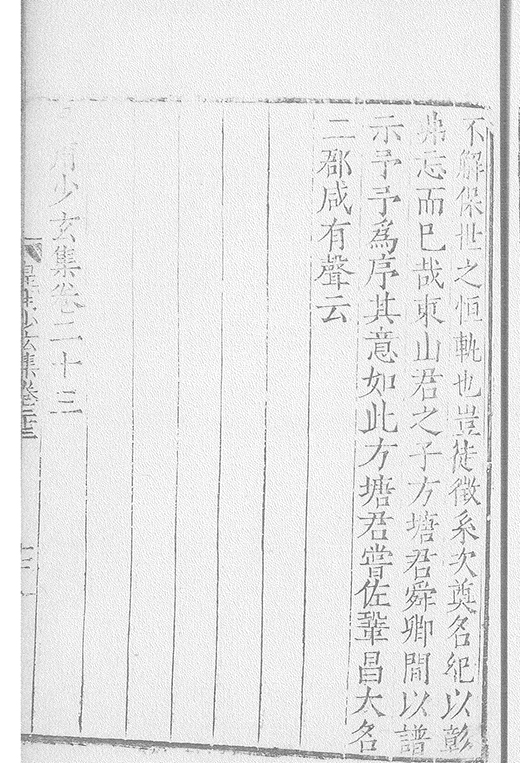 不解保世之恒軌也豈徒徵系次奠名紀以彰
弗忘而已哉東山君之子方塘君舜卿間以譜
示予予爲序其意如此方塘君嘗佐鞏昌大名
二郡咸有聲云
甫少玄集卷二十三
少玄集卷二十三